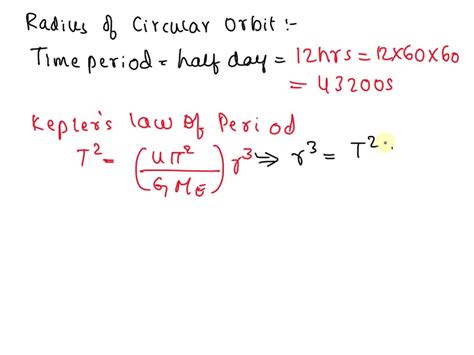 Radius of Circular Orbit :-
Time period = half day = 12hrs = 12x60x60
= 43200s
Kepler's law of Period
T² = (4π²/GM_E) r³ ⇒ r³ = T² .